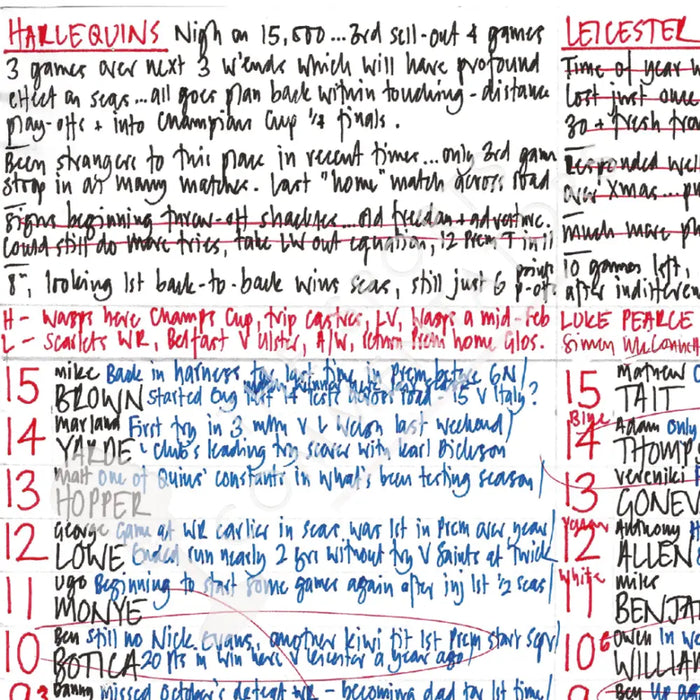 HARLEQUINS Nigh on 15,000...3rd sell-out 4 games
3 games over next 3 w'ends which will have profound
effect on seas...all goes plan back within touching-distance
play-offs + into Champions Cup 1/4 finals.
Been strangers to this place in recent times...only 3rd game
Stoop in as many matches. Last "home" match across road
Signs beginning throw-off shackles...old freedom + adventure.
Could still do more tries, take LW out equation, 12 Prem T in 11
8th, looking 1st back-to-back wins seas, still just 6 points p-offs
H - Wasps here Champs Cup, trip Castres, LV, Wasps a mid-Feb
L - Scarlets WR, Belfast V Ulster, A/W, return Prem home Glos.
15 Mike BROWN Back in harness for last time in Prem before 6N/
Started Eng last 14 Tests across road - 15 V Italy?
14 Marland YARDE First try in 3 mths V L Welsh last weekend/
club's leading try scorer with Karl Dickson
13 Matt HOPPER one of Quins' constants in what's been testing season/
12 George LOWE Game at WR earlier in seas was 1st in Prem over year/
Ended run nearly 2 yrs without try V Saints at Twick
11 Ugo MONYE Beginning to start some games again after inj 1st 1/2 seas/
10 Ben BOTICA still no Nick Evans, another Kiwi tit 1st Prem start Sept/
20 pts in win here V Leicester a year ago
9 Danny missed October's defeat WR - becoming dad for 1st time/
LEICESTER
Time of year w
Lost just once
30 + fresh from
Responded well
over Xmas...pu
much more ph
10 games left,
after indifferen
LUKE PEARCE
Simon McConnell
15 Mathew TAIT
Blue
14 Adam THOMPS only
13 Vereniki GONEV
Yellow
12 Anthony ALLEN
White
11 Miles BENJA
10 Owen WILLIAM In we
9 Ben